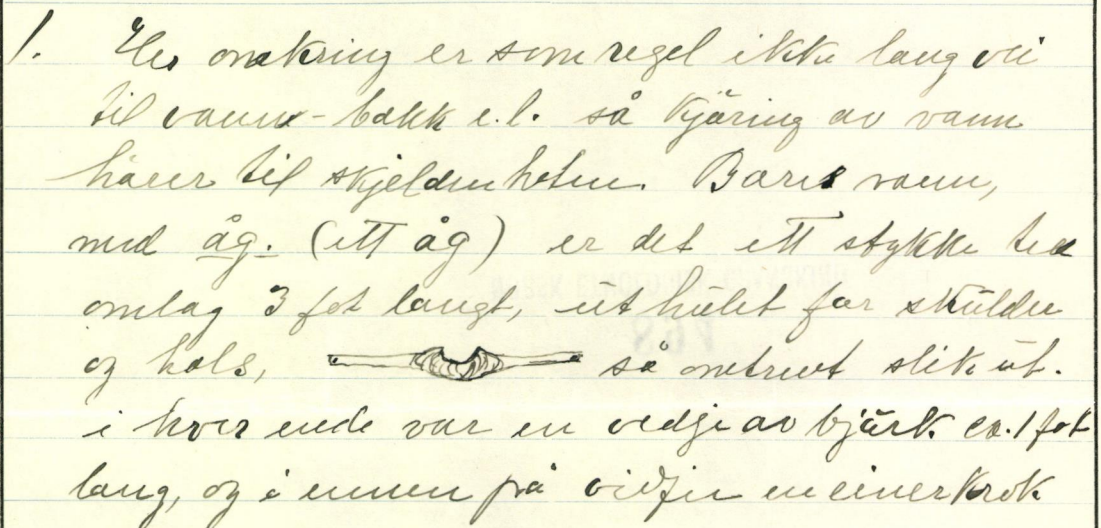 1. Her omkring er som regel ikke lang vei
til vann - bækk e.l. så kjöring av vann
hörer til skjeldenheten. Bæres vann,
med åg. (ett åg) er det ett stykke tre
omlag 3 fot langt, uthulet for skulder
og hals, så omtrent slik ut.
i hver ende var en vedje av björk ca. 1 fot
lang, og i ennen på vidjen en einerkrok